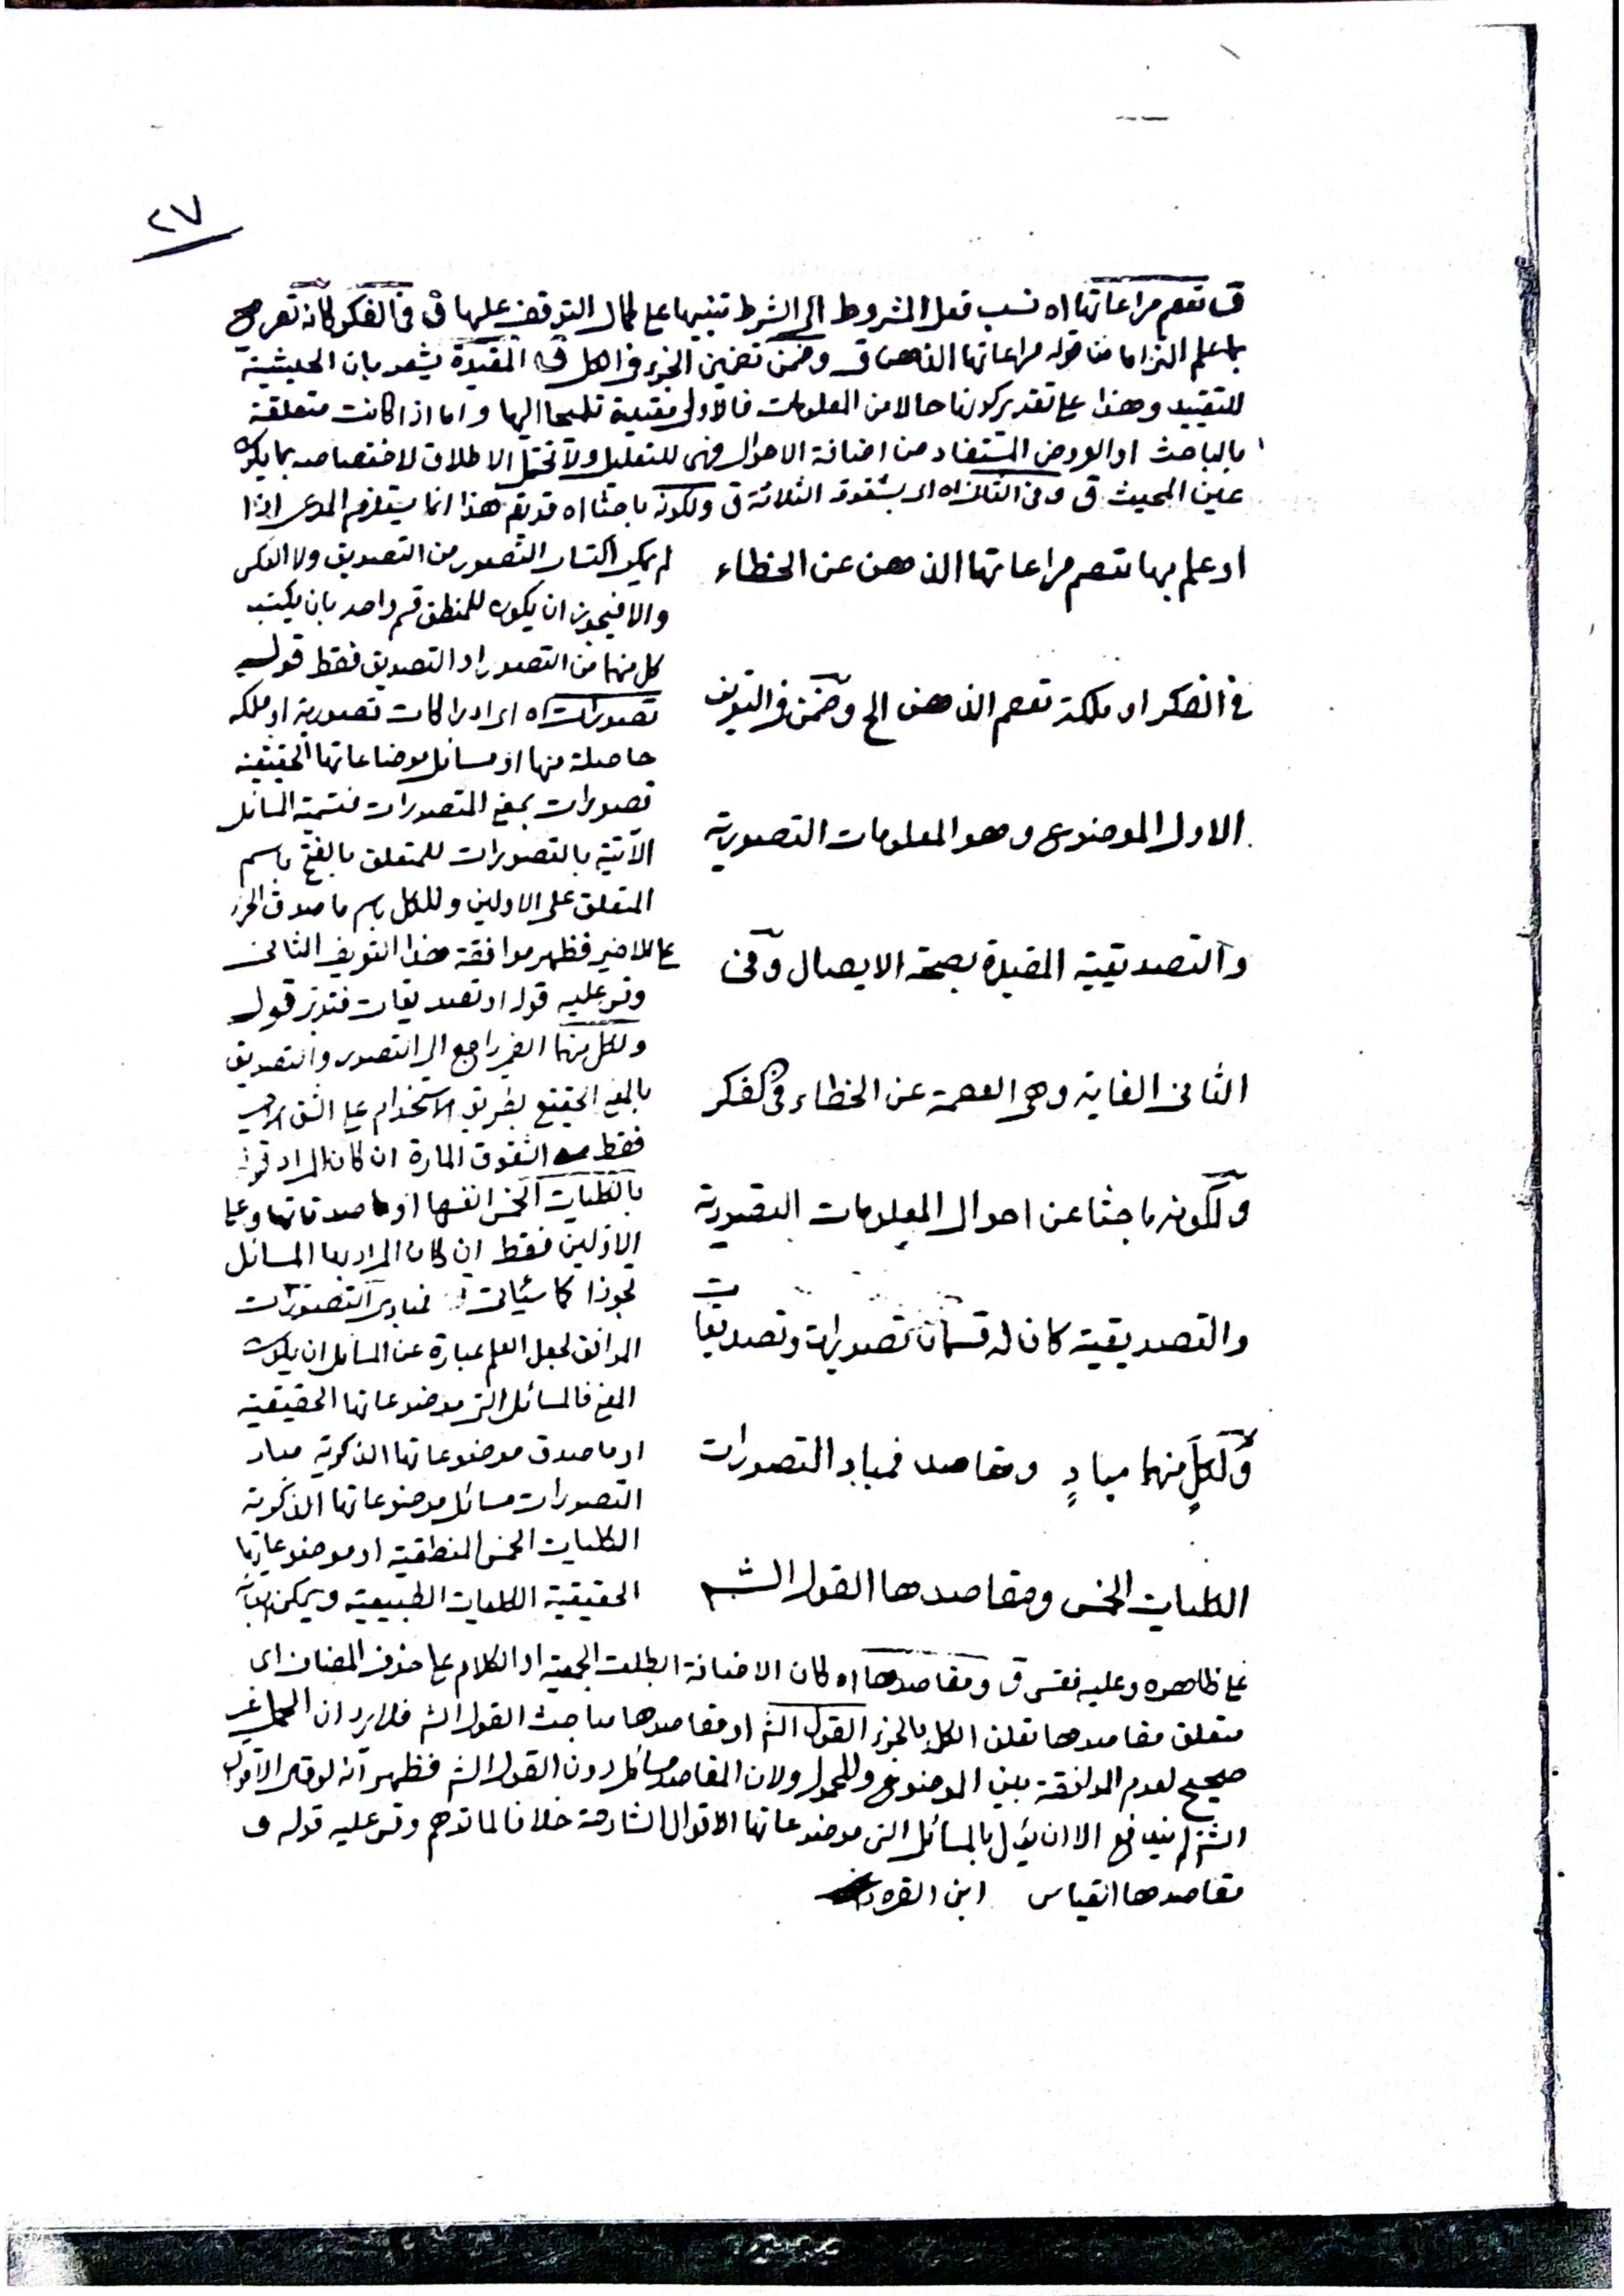 ٢٧
ق تعصم مراعاتها اه نسب فعل المشروط الى الشرط تنبيها على كمال التوقف عليها ق في الفكر كأنه تصريح
بما علم التزاما من قوله مراعاتها الذهن ق وضمن تضمين الجزء في الكل ق المقيدة يشعر بان الحيثية
للتقييد وهذا على تقدير كونها حالا من المعلومات فالاولى مقيدة تلميحا اليها واما اذا كانت متعلقة
بالباحث او العروض المستفاد من اضافة الاحوال فهي للتعليل ولا تحتمل الاطلاق لاختصاصه بما يكون
عين المحيث ق وفي الثاني اه اى بشقوقه الثلاثة ق ولكونه باحثا اه قد يقم هذا انما يستلزم المدعى اذا
او علم بها تعصم مراعاتها الذهن عن الخطاء
في الفكر او ملكة تعصم الذهن الخ وضمن في التعريف
الاول الموضوع وهو المعلومات التصورية
والتصديقية المقيدة بصحة الايصال وفي
الثانى الغاية وهى العصمة عن الخطاء في الفكر
ولكونه باحثا عن احوال المعلومات التصورية
والتصديقية كان له قسمان تصورات وتصديقات
ولكلٍ منهما مبادٍ ومقاصد فمبادى التصورات
الكليات الخمس ومقاصدها القول الشم
لم يمكن اكتساب التصور من التصديق ولا العكس
والا فيجوز ان يكون للمنطق قسم واحد بان يكتسب
كل منهما من التصور او التصديق فقط قوله
تصورات اه اى ادراكات تصورية او ملكة
حاصلة منها او مسائل موضاعاتها الحقيقية
تصورات بمعنى المتصورات فتسمية المسائل
الآتية بالتصورات للمتعلق بالفتح باسم
المتعلق على الاولين وللكل باسم ما صدق الجزء
على الاخير فظهر موافقة هذا التعريف الثانى
وقس عليه قوله او تصديقات فتدبر قوله
ولكل منهما الضمير راجع الى التصور والتصديق
بالمعنى الحقيقي بطريق الاستخدام على الشق الاخير
فقط من الشقوق المارة ان كان المراد
بالكليات الخمس انفسها او ما صدقاتها وعلى
الاولين فقط ان كان المراد بها المسائل
تجوزا كما سيأتى فمبادى التصورات
الموافق لجعل العلم عبارة عن المسائل ان يكون
المعنى فالمسائل التى موضوعاتها الحقيقية
او ما صدق موضوعاتها الذكرية مباد
التصورات مسائل موضوعاتها الذكرية
الكليات الخمس المنطقية او موضوعاتها
الحقيقية الكليات الطبيعية ويمكن ابقائه
على ظاهره وعليه فقس ق ومقاصدها اه كان الاضافة ابطلت الجمعية او الكلام على حذف المضاف اى
متعلق مقاصدها تعلق الكل بالجزء القول الشم او مقاصدها مباحث القول الشم فلا يرد ان الحمل غير
صحيح لعدم الموافقة بين الموضوع والمحمول ولان المقاصد مسائل دون القول الشم فظهر انه لو قال الاقوال
الشم لم يندفع الا ان يأول بالمسائل التى موضوعاتها الاقوال الشارحة خلافا لما توهم وقس عليه قوله و
مقاصدها القياس ابن القره